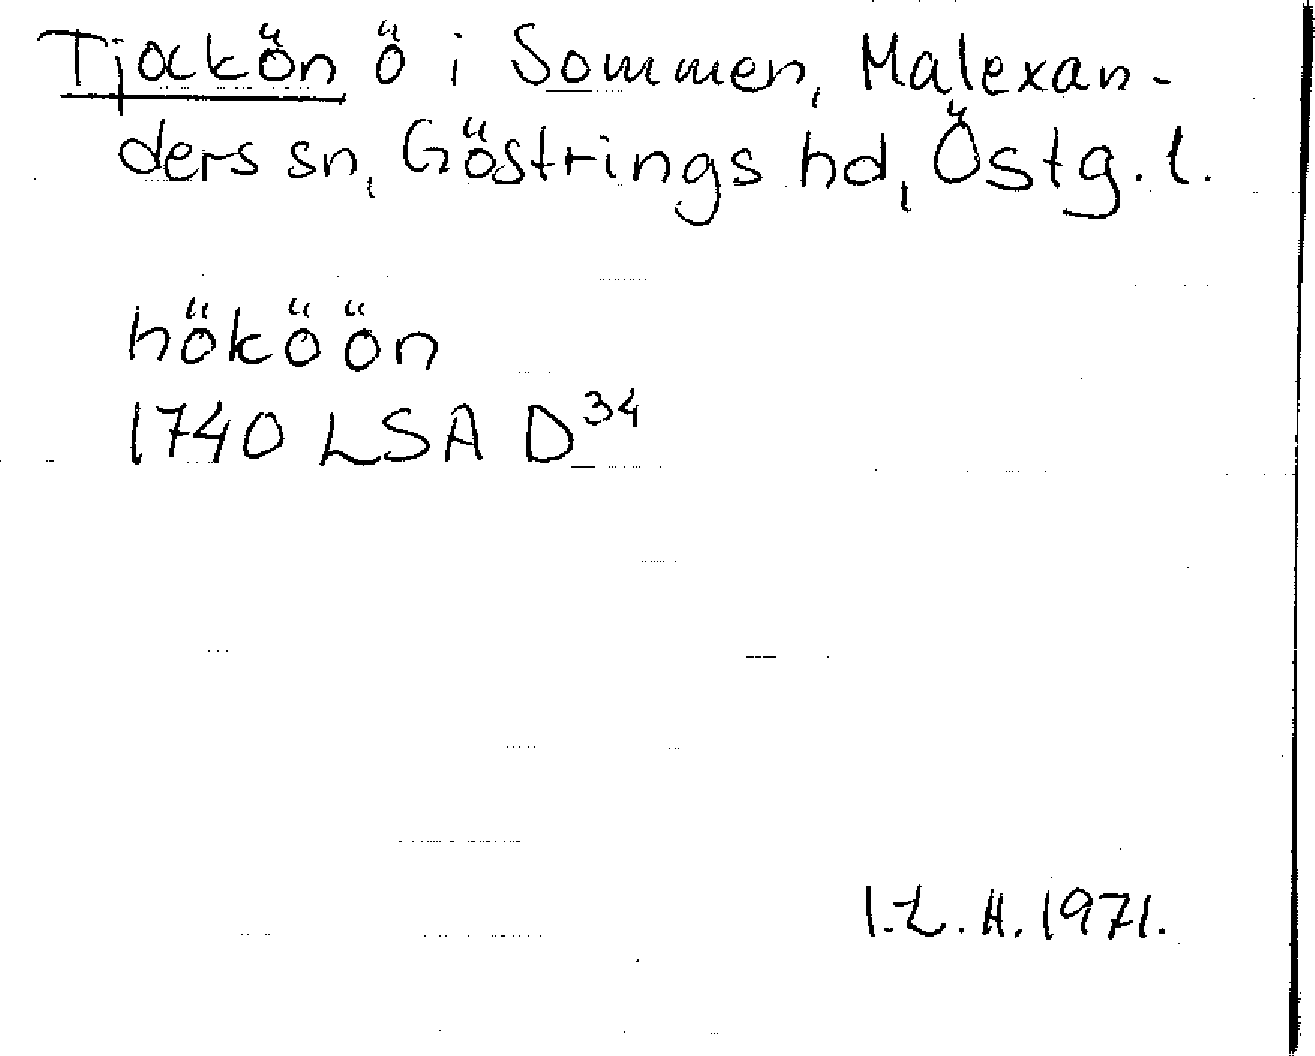 Tjockön ö i Sommen, Malexan-
ders sn, Göstrings hd, Östg. l.
hököön
1740 LSA D34
I.L.H. 1971.